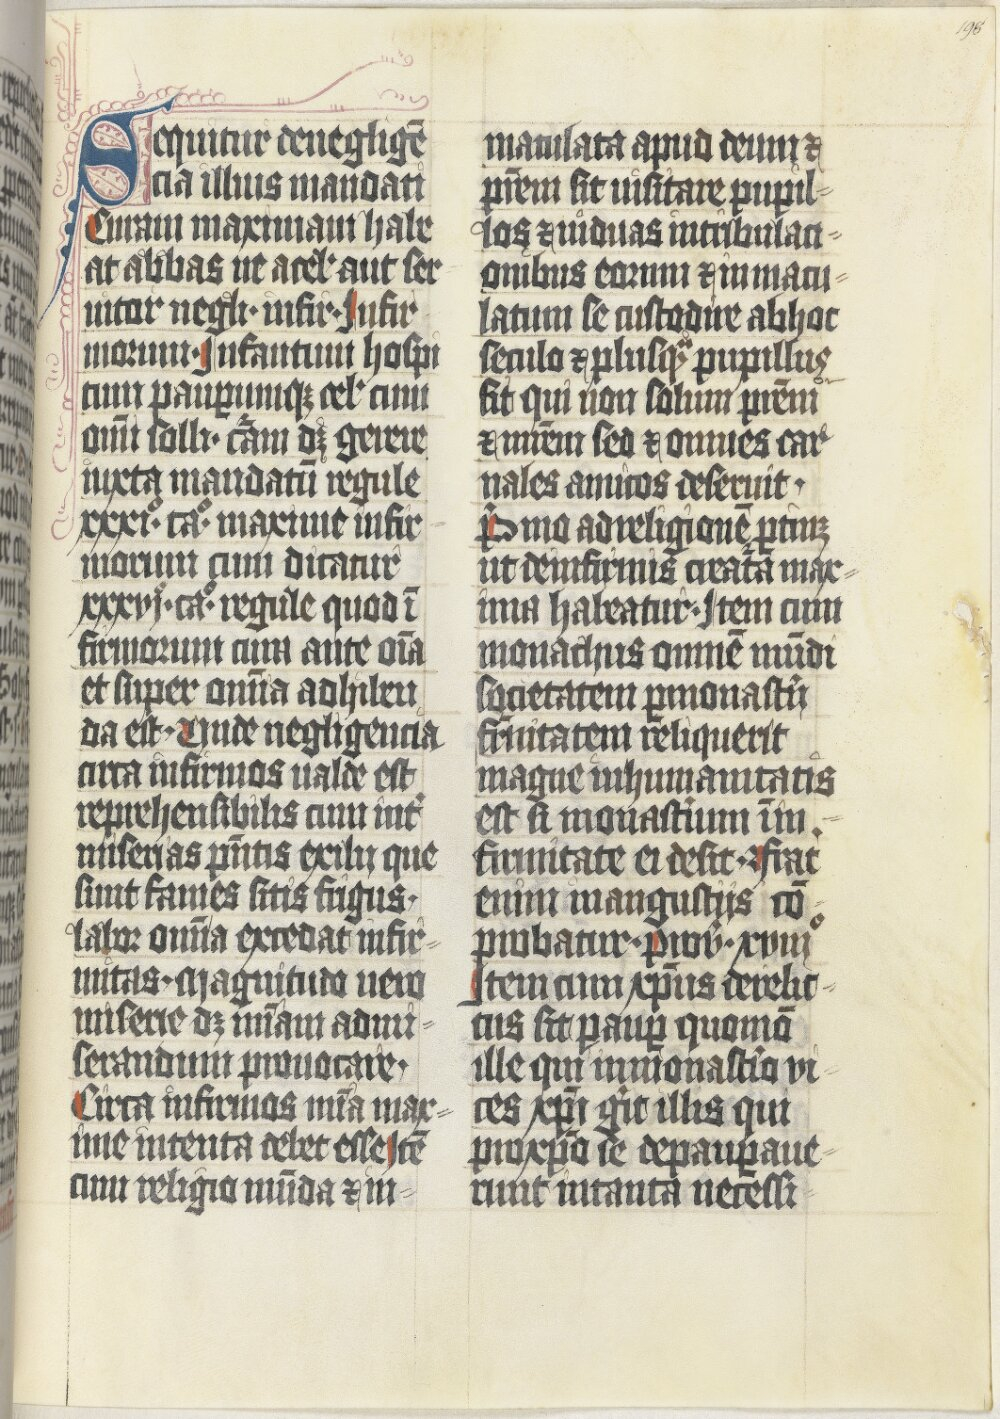 198
Sequitur de negligē
cia illius mandati
Curam maximam habe
at abbas ne a cell' aut ser
uitor negli· infir· Infir
morum· Infantum hospi
tum paupumqꝫ cel' cum
omī solli· curam dꝫ gerere
iuxta mandatū regule
xxxiº· caº· maxime infir
morum cum dicatur
xxxvjº· caº· regule quod ī
firmorum cura ante oīa
et super omīa adhiben
da est· Unde negligencia
circa infirmos ualde est
reprehensibilis cum int'
miserias pn̄tis exilij que
sunt fames sitis frigus·
labor omīa excedat infir=
mitas· Magnitudo uero
miserie dꝫ mīam ad mi=
serandum prouocare·
Circa infirmos mīa max=
ime intenta debet esse Itē
cum religio mūda ⁊ in=
maculata apud deum ⁊
prēm sit uisitare pupil=
los ⁊ uiduas in tribulaci=
onibus eorum ⁊ inmacu=
latum se custodire ab hoc
seculo ⁊ plusqᵃ pupillus
sit qui non solum prēm
⁊ mrēm sed ⁊ omnes car
nales amicos deseruit·
Primo ad religionē ptinꝫ
ut de infirmis cura tā max=
ima habeatur· Item cum
monachus omnē mūdi
societatem p monastīi
firmitatem reliquerit
magne inhumanitatis
est si monastīium ī in=
firmitate ei desit· Frat'
enim in angustijs cō=
probatur· prou̅· xviiº
Item cum xp̄us derelic=
tus sit paup quomō
ille qui in monastīo vi=
ces xp̄i gīt illis qui
pro xp̄o se depaupaue=
runt in tanta necessi=